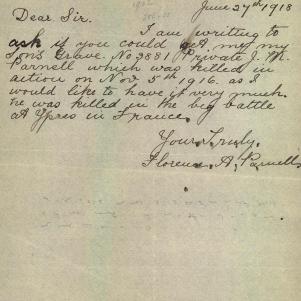 June 27th 1918
Dear Sir.
I am writing to
ask if you could get me my
Sons Grave. No 3881 Private J. M.
Parnell which was killed in
action on Nov 5th 1916. as I
would like to have it very much.
he was killed in the big battle
at Ypres in France.
Yours Truly.
Florence A. Parnell